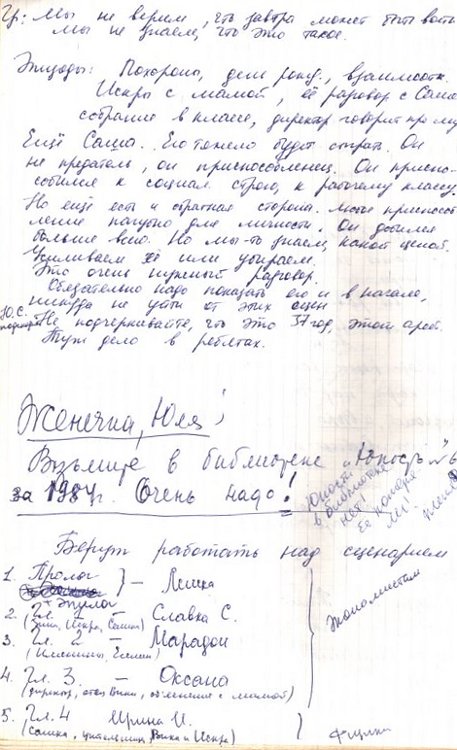 Гр: Мы не верим, что завтра может быть война
мы не знаем, что это такое.
Эпизоды: Похороны, день рожд., взаимоотн.
Искры с мамой, её разговор с Сашей
собрание в классе, директор говорит про му
Ещё Саша. Его тяжело будет сыграть. Он
не предатель, он приспособленец. Он приспо-
собился к социал. строю, к рабочему классу.
Но ещё есть и обратная сторона. приспособ
ление пагубно для личности. Он добился
больше всего. Но мы-то знаем, какой ценой.
Усиливаем её или убираем.
Это очень нужный разговор.
Обязательно надо показать его и в начале,
никуда не уйти от этих сцен
Ю.С.
Не подчеркивайте, что это 37 год, этот арест.
Тут дело в ребятах.
Женечка, Юля!
Возьмите в библиотеке "Юность" №6
за 1984г. Очень надо!
Юности
в библиотеке
нет!
Её номера
Берут работать над сценарием
1. Пролог + Эпилог } – Лешка
2. Гл. 1 – Славка С.
(Зина, Искра, Сашка)
3. Гл. 2 – Марадон
(Именины, Есенин)
4. Гл. 3. – Оксана
(директор, отец Вики, объяснения с мамой)
5. Гл. 4 Ирина И.
(Сашка, учительница, Вика и Искра)
Экономистам
Физики